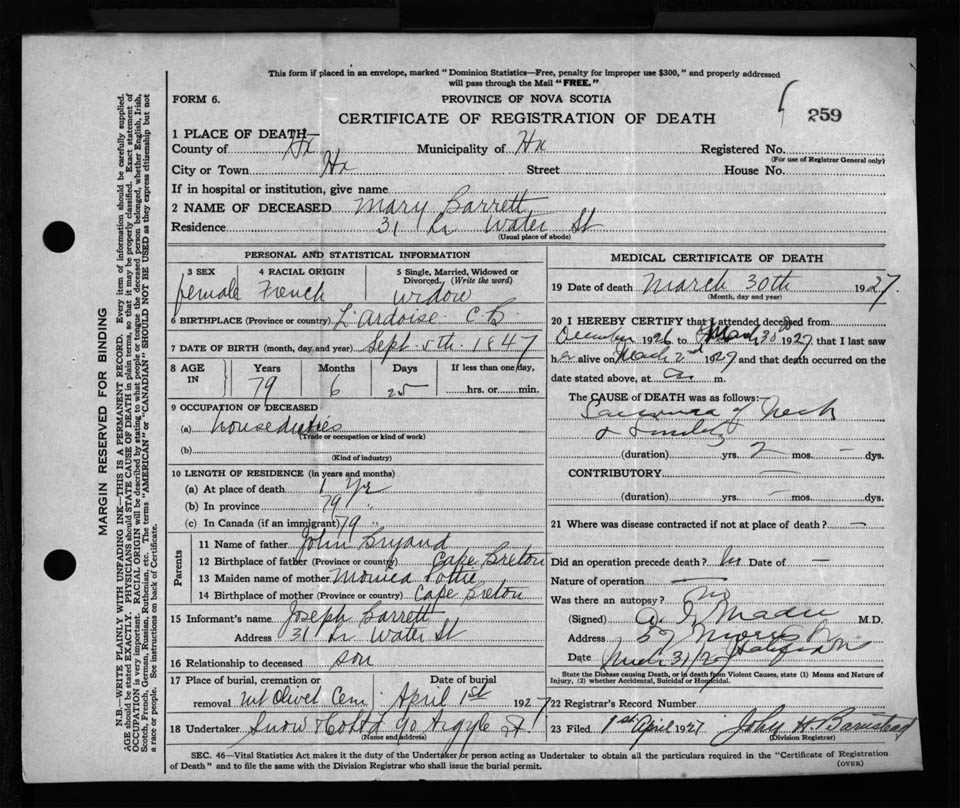 This form if placed in an envelope, marked "Dominion Statistics—Free, penalty for improper use $300," and properly addressed
will pass through the Mail "FREE."
FORM 6.
PROVINCE OF NOVA SCOTIA
259
CERTIFICATE OF REGISTRATION OF DEATH
1 PLACE OF DEATH—
County of Hx Municipality of Hx Registered No.
(For use of Registrar General only)
City or Town Hx Street House No.
If in hospital or institution, give name
2 NAME OF DECEASED Mary Barrett
Residence 31 Lr Water St
(Usual place of abode)
PERSONAL AND STATISTICAL INFORMATION
3 SEX 4 RACIAL ORIGIN 5 Single, Married, Widowed or
Divorced, (Write the word)
female French widow
6 BIRTHPLACE (Province or country) L'Ardoise C.B.
7 DATE OF BIRTH (month, day and year) Sept. 5th. 1847
8 AGE IN Years Months Days If less than one day,
79 6 25 hrs. or min.
9 OCCUPATION OF DECEASED
(a) houseduties
(Trade or occupation or kind of work)
(b)
(Kind of industry)
10 LENGTH OF RESIDENCE (in years and months)
(a) At place of death 1 Yr
(b) In province 79 "
(c) In Canada (if an immigrant) 79 "
Parents
11 Name of father John Bryand
12 Birthplace of father (Province or country) Cape Breton
13 Maiden name of mother Monica Pottie
14 Birthplace of mother (Province or country) Cape Breton
15 Informant's name Joseph Barrett
Address 31 Lr Water St
16 Relationship to deceased son
17 Place of burial, cremation or Date of burial
removal Mt Olivet Cem April 1st 1927
18 Undertaker Snow & Co Ltd 90 Argyle St.
(Name and address)
MEDICAL CERTIFICATE OF DEATH
19 Date of death March 30th 1927.
(Month, day and year)
20 I HEREBY CERTIFY that I attended deceased from
December 1926 to March 30 1927 that I last saw
her alive on March 2nd 1927 and that death occurred on the
date stated above, at a m.
The CAUSE of DEATH was as follows:
Sarcoma of Neck
&
(duration) yrs. 2 mos. — dys.
CONTRIBUTORY —
(duration) yrs. — mos. dys.
21 Where was disease contracted if not at place of death? —
Did an operation precede death? no Date of —
Nature of operation —
Was there an autopsy? no
(Signed) M.D.
Address 57 Morris St
Halifax
Date March 31/27
State the Disease causing Death, or in death from Violent Causes, state (1) Means and Nature of
Injury, (2) whether Accidental, Suicidal or Homicidal.
22 Registrar's Record Number
23 Filed 1st April 1927 John H Barnstead
(Division Registrar)
SEC. 46—Vital Statistics Act makes it the duty of the Undertaker or person acting as Undertaker to obtain all the particulars required in the "Certificate of Registration
of Death" and to file the same with the Division Registrar who shall issue the burial permit.
(OVER)
MARGIN RESERVED FOR BINDING
N.B.—WRITE PLAINLY WITH UNFADING INK—THIS IS A PERMANENT RECORD. Every item of information should be carefully supplied.
AGE should be stated EXACTLY. PHYSICIANS should STATE CAUSE OF DEATH in plain terms, so that it may be properly classified. Exact statement of
OCCUPATION is very important. RACIAL ORIGIN will be described by stating to what people or tongue the deceased person belonged, whether English, Irish,
Scotch, French, German, Russian, Ruthenian, etc. The terms "AMERICAN" or "CANADIAN" SHOULD NOT BE USED as they express citizenship but not
a race or people. See instructions on back of Certificate.